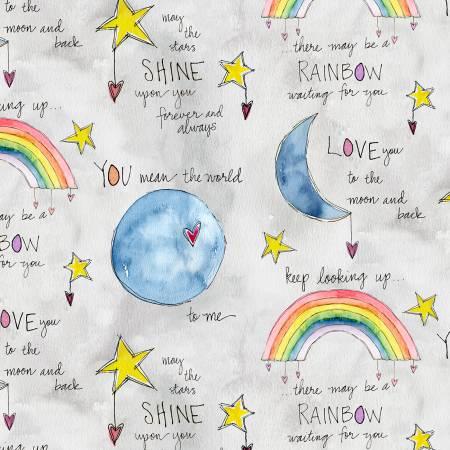 to the
moon and
back
may
the
stars
SHINE
upon you
forever and
always
...there may be a
RAINBOW
waiting for you
ing up...
YOU mean the world
to me
LOVE you
to the
moon and
back
ay be a
BOW
for you
keep looking up...
OVE you
to the
moon and
back
may
the
stars
SHINE
upon you
...there may be a
RAINBOW
waiting for you